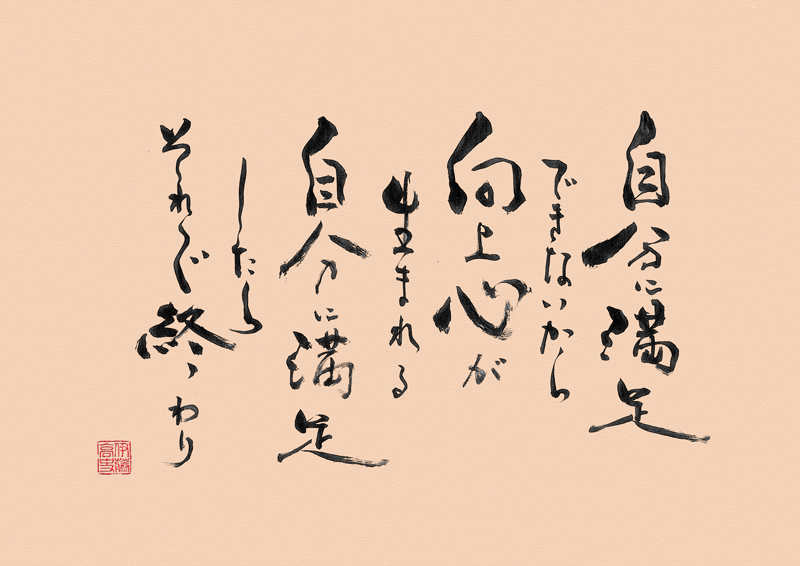 自分に満足
できないから
向上心が
生まれる
自分に満足
したら
それで終わり
伊藤